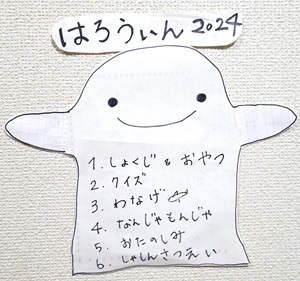 はろうぃん 2024
1. しょくじ & おやつ
2. クイズ
3. わなげ
4. なんじゃもんじゃ
5. おたのしみ
6. しゃしんさつえい